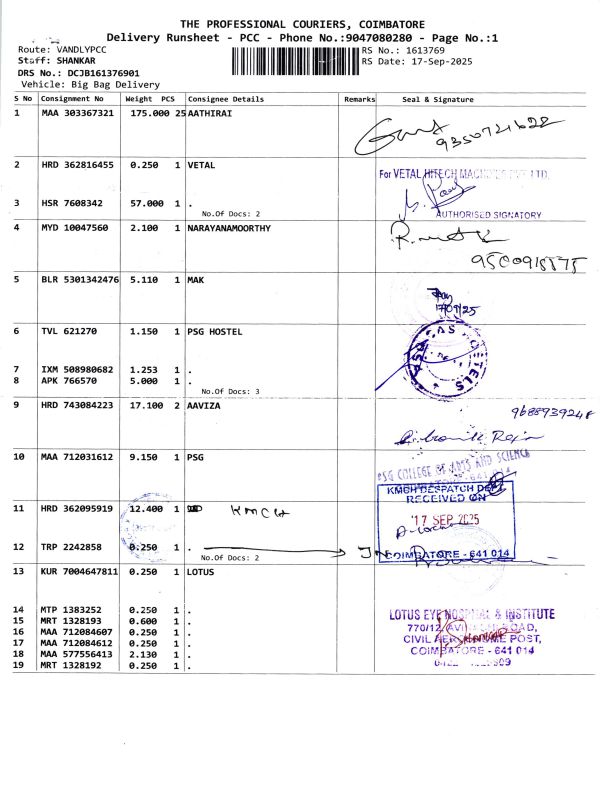 THE PROFESSIONAL COURIERS, COIMBATORE
Delivery Runsheet - PCC - Phone No.:9047080280 - Page No.:1
Route: VANDLYPCC
RS No.: 1613769
Staff: SHANKAR
RS Date: 17-Sep-2025
DRS No.: DCJB161376901
Vehicle: Big Bag Delivery
S No Consignment No Weight PCS Consignee Details Remarks Seal & Signature
1 MAA 303367321 175.000 25 AATHIRAI
9350721622
2 HRD 362816455 0.250 1 VETAL
For VETAL HITECH MACHINES PVT. LTD.
3 HSR 7608342 57.000 1 .
No.Of Docs: 2
AUTHORISED SIGNATORY
4 MYD 10047560 2.100 1 NARAYANAMOORTHY
9500918575
5 BLR 5301342476 5.110 1 MAK
17/09/25
6 TVL 621270 1.150 1 PSG HOSTEL
PSG CAS HOSTELS
7 IXM 508980682 1.253 1 .
8 APK 766570 5.000 1 .
No.Of Docs: 3
9 HRD 743084223 17.100 2 AAVIZA
9688939248
10 MAA 712031612 9.150 1 PSG
PSG COLLEGE OF ARTS AND SCIENCE
641 014
KMCH DESPATCH DEPT.
RECEIVED ON
11 HRD 362095919 12.400 1 KMCH
17 SEP 2025
12 TRP 2242858 0.250 1 .
No.Of Docs: 2
COIMBATORE - 641 014
13 KUR 7004647811 0.250 1 LOTUS
14 MTP 1383252 0.250 1 .
LOTUS EYE HOSPITAL & INSTITUTE
15 MRT 1328193 0.600 1 .
770/12, AVINASHI ROAD,
16 MAA 712084607 0.250 1 .
CIVIL AERODROME POST,
17 MAA 712084612 0.250 1 .
COIMBATORE - 641 014
18 MAA 577556413 2.130 1 .
19 MRT 1328192 0.250 1 .